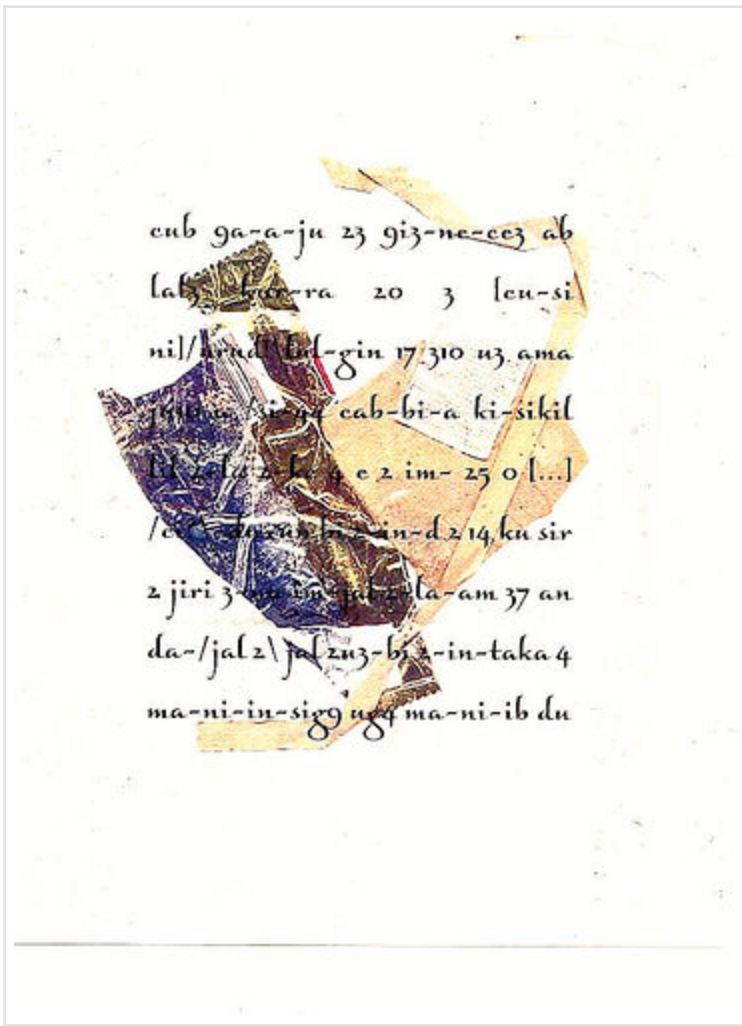 cub 9a-a-ju 23 9i3-ne-ce3 ab
lab3 kur-ra 20 3 [eu-si
ni]/urud!\lal-gin 17 310 u3 ama
/si-44 cab-bi-a ki-sikil
lil 2-la 2-ke 4 e 2 im- 25 0 [...]
bi 2-in-d 2 14 ku sir
2 jiri 3-na im-jal 2-la-am 37 an
da-/jal 2\ jal 2u3-bi 2-in-taka 4
ma-ni-in-sig9 ug4 ma-ni-ib du